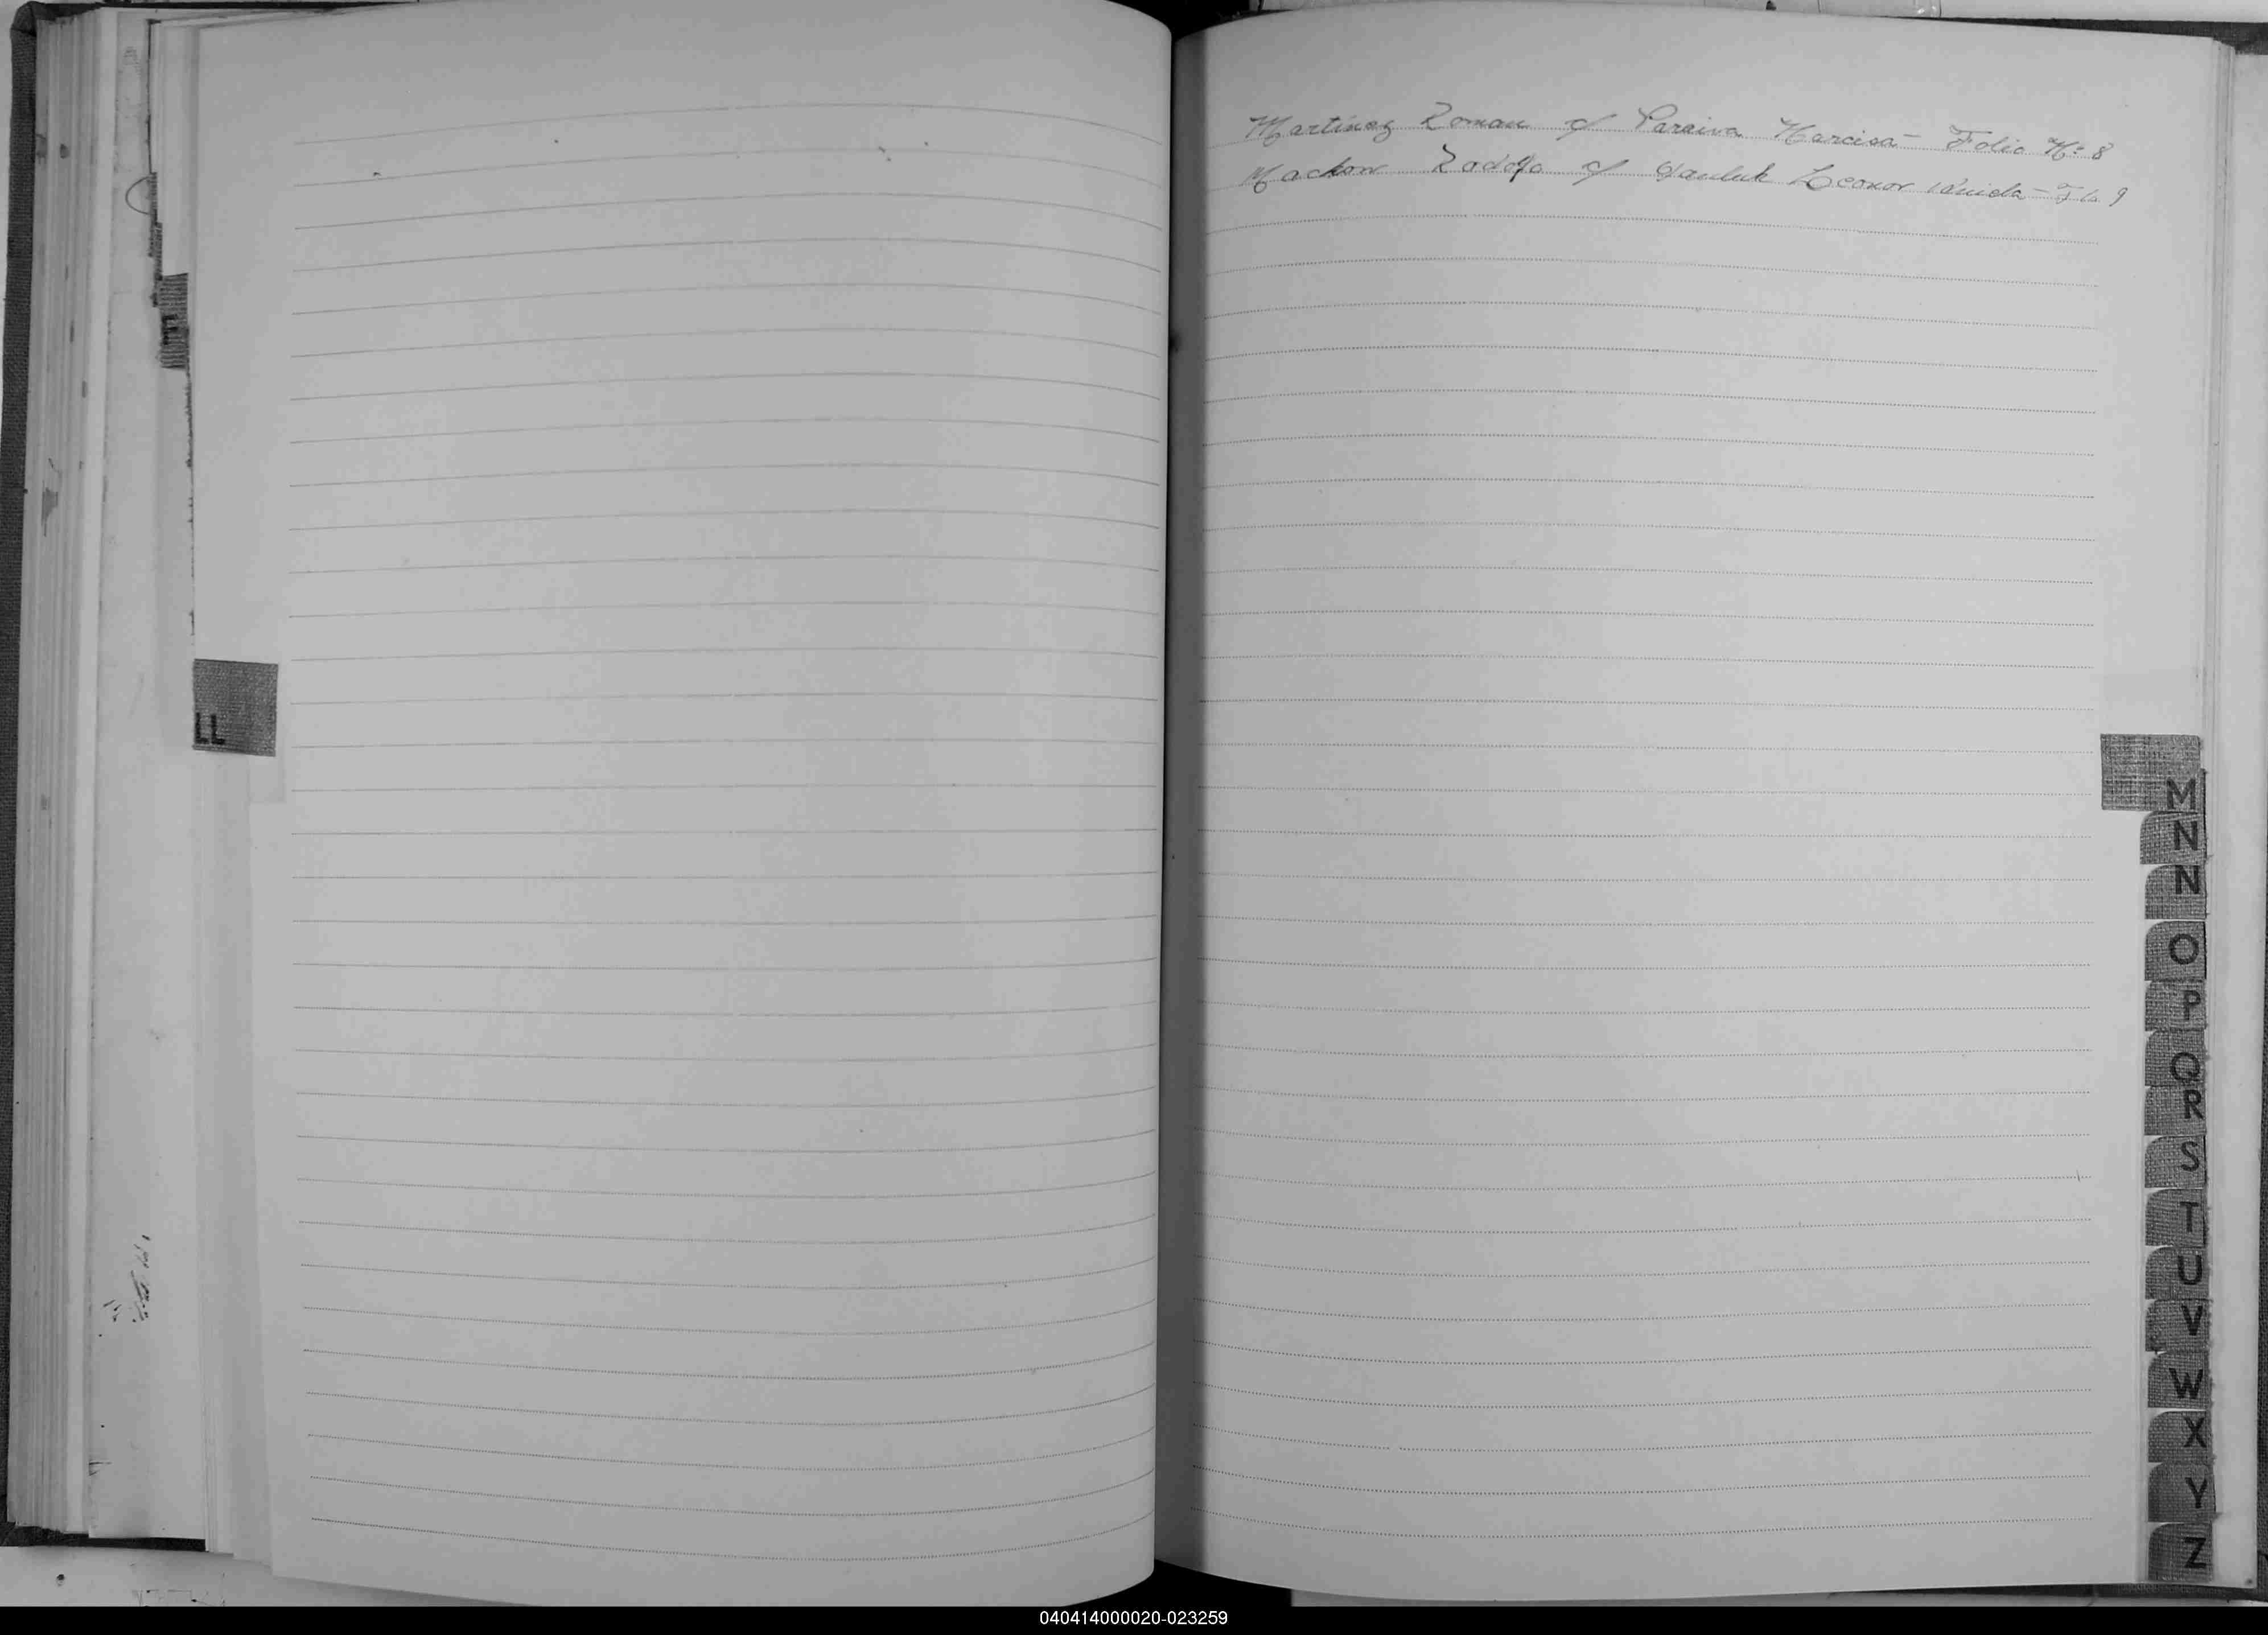 LL
Martinez Roman c/ Pareiva Narcisa - Folio Nº 8
Machow Rodolfo c/ Leonor - Flo. 9
M
N
N
O
P
Q
R
S
T
U
V
W
X
Y
Z
040414000020-023259